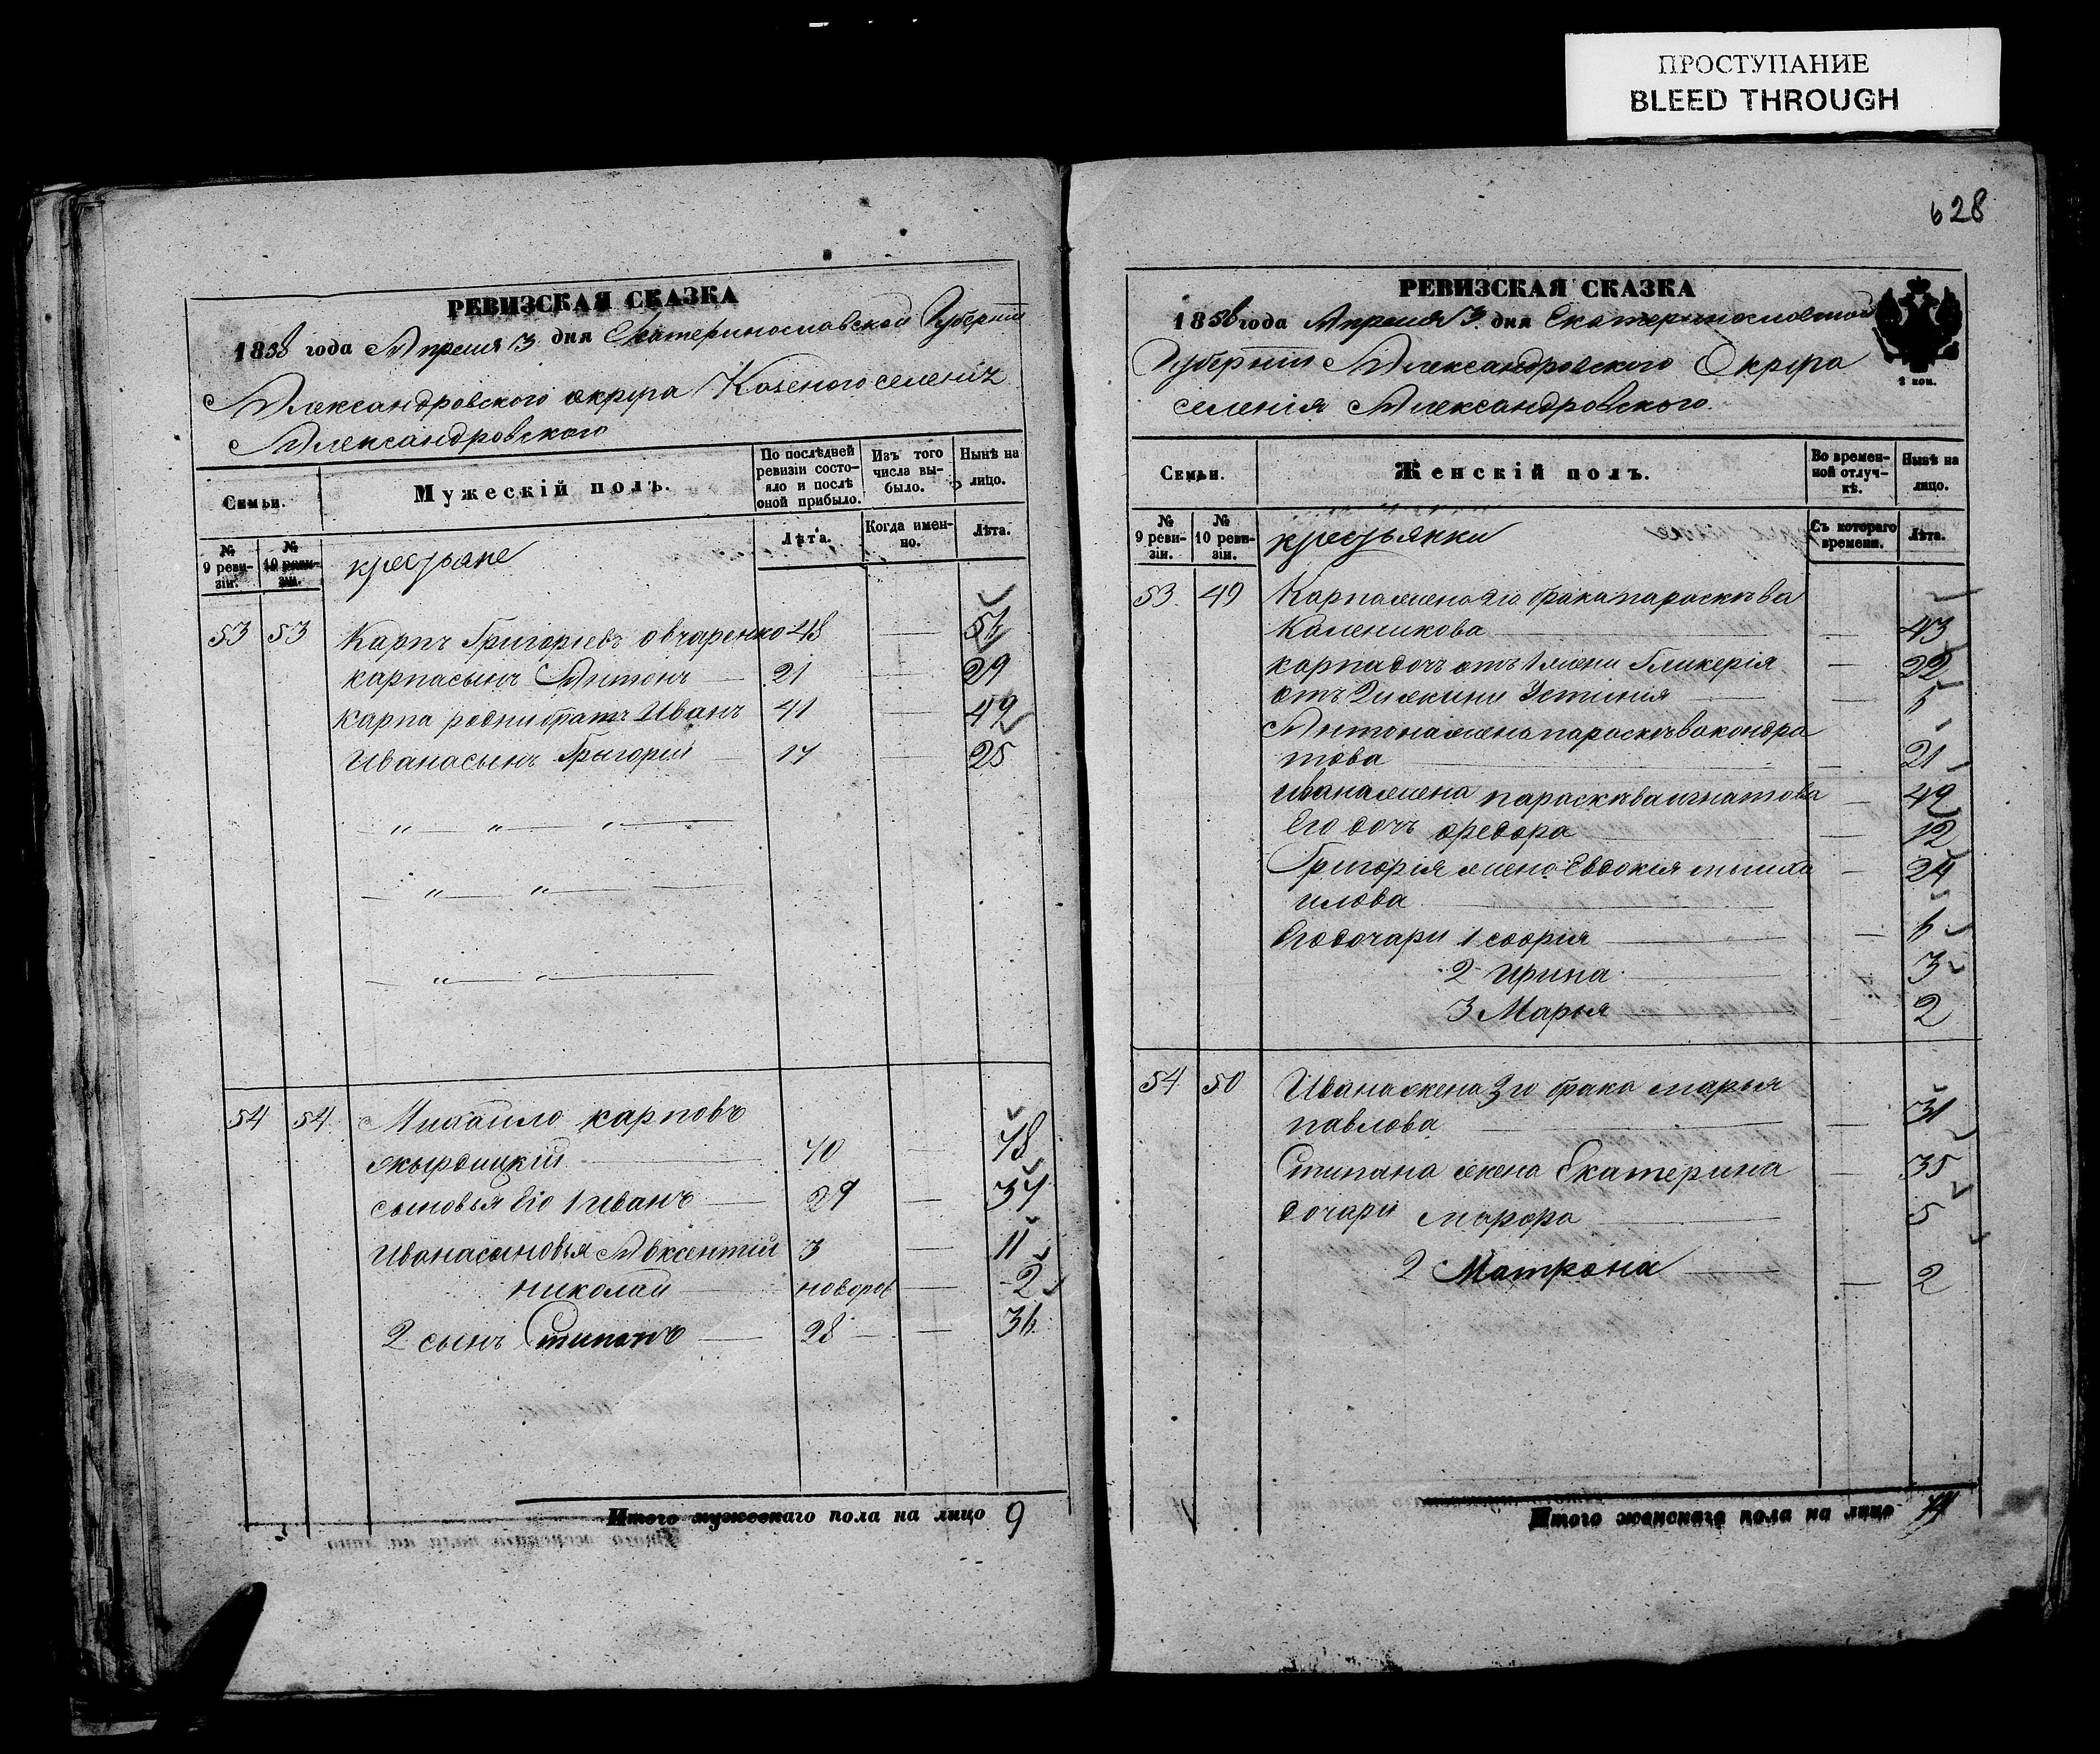 ПРОСТУПАНИЕ
BLEED THROUGH
628
РЕВИЗСКАЯ СКАЗКА
1858 года Апреля 3 дня Екатеринославской Губернии
Александровского округа Казеного селения
Александровского
Семьи.
Мужескій полъ.
По послѣдней ревизіи состояло и послѣ оной прибыло.
Изъ того числа выбыло.
Нынѣ на лицо.
№ 9 ревизіи.
№ 10 ревизіи.
крестьяне
Лѣта.
Когда именно.
Лѣта.
53 53 Карпъ Григорьевъ овчаренко 48 — 56
карпасынъ Антонъ — 21 — 29
карпа родни братъ Иванъ 41 — 49
Иванасынъ Григорий — 17 — 25
— „ — „ — „ —
— „ — „ —
— „ — „ —
54 54 Михайло карповъ
40 — 48
сыновья его 1 иванъ — 29 — 37
Иванасыновья Авксентий 3 — 11
николай — новорож — 2
2 сынъ Стипанъ — 28 — 36
Итого мужескаго пола на лицо 9
РЕВИЗСКАЯ СКАЗКА
1858 года Апреля 3 дня Екатеринославской
Губернии Александровского Округа
селенія Александровского
2 коп.
Семьи.
Женскій полъ.
Во временной отлучкѣ.
Нынѣ на лицо.
№ 9 ревизіи.
№ 10 ревизіи.
крестьянки
Съ котораго времени.
Лѣта.
53 49 Карпа жена 2го брака параскѣва
Каленикова — 43
карпа дочъ отъ 1 жени Гликерія — 22
отъ 2й жини Устиния — 5
Антона жена параскѣва кондра
това — 21
ивана жена параскѣва игнатова — 49
Его дочъ федора — 12
Григорія жена Евдокія миха
илова — 24
Его дочари 1 софия — 6
2 ирина — 3
3 Марья — 2
54 50 Ивана жена 3го брака марья
павлова — 31
Стипана жена Екатерина — 35
дочари — 5
2 Матрона — 2
Итого женскаго пола на лицо 14